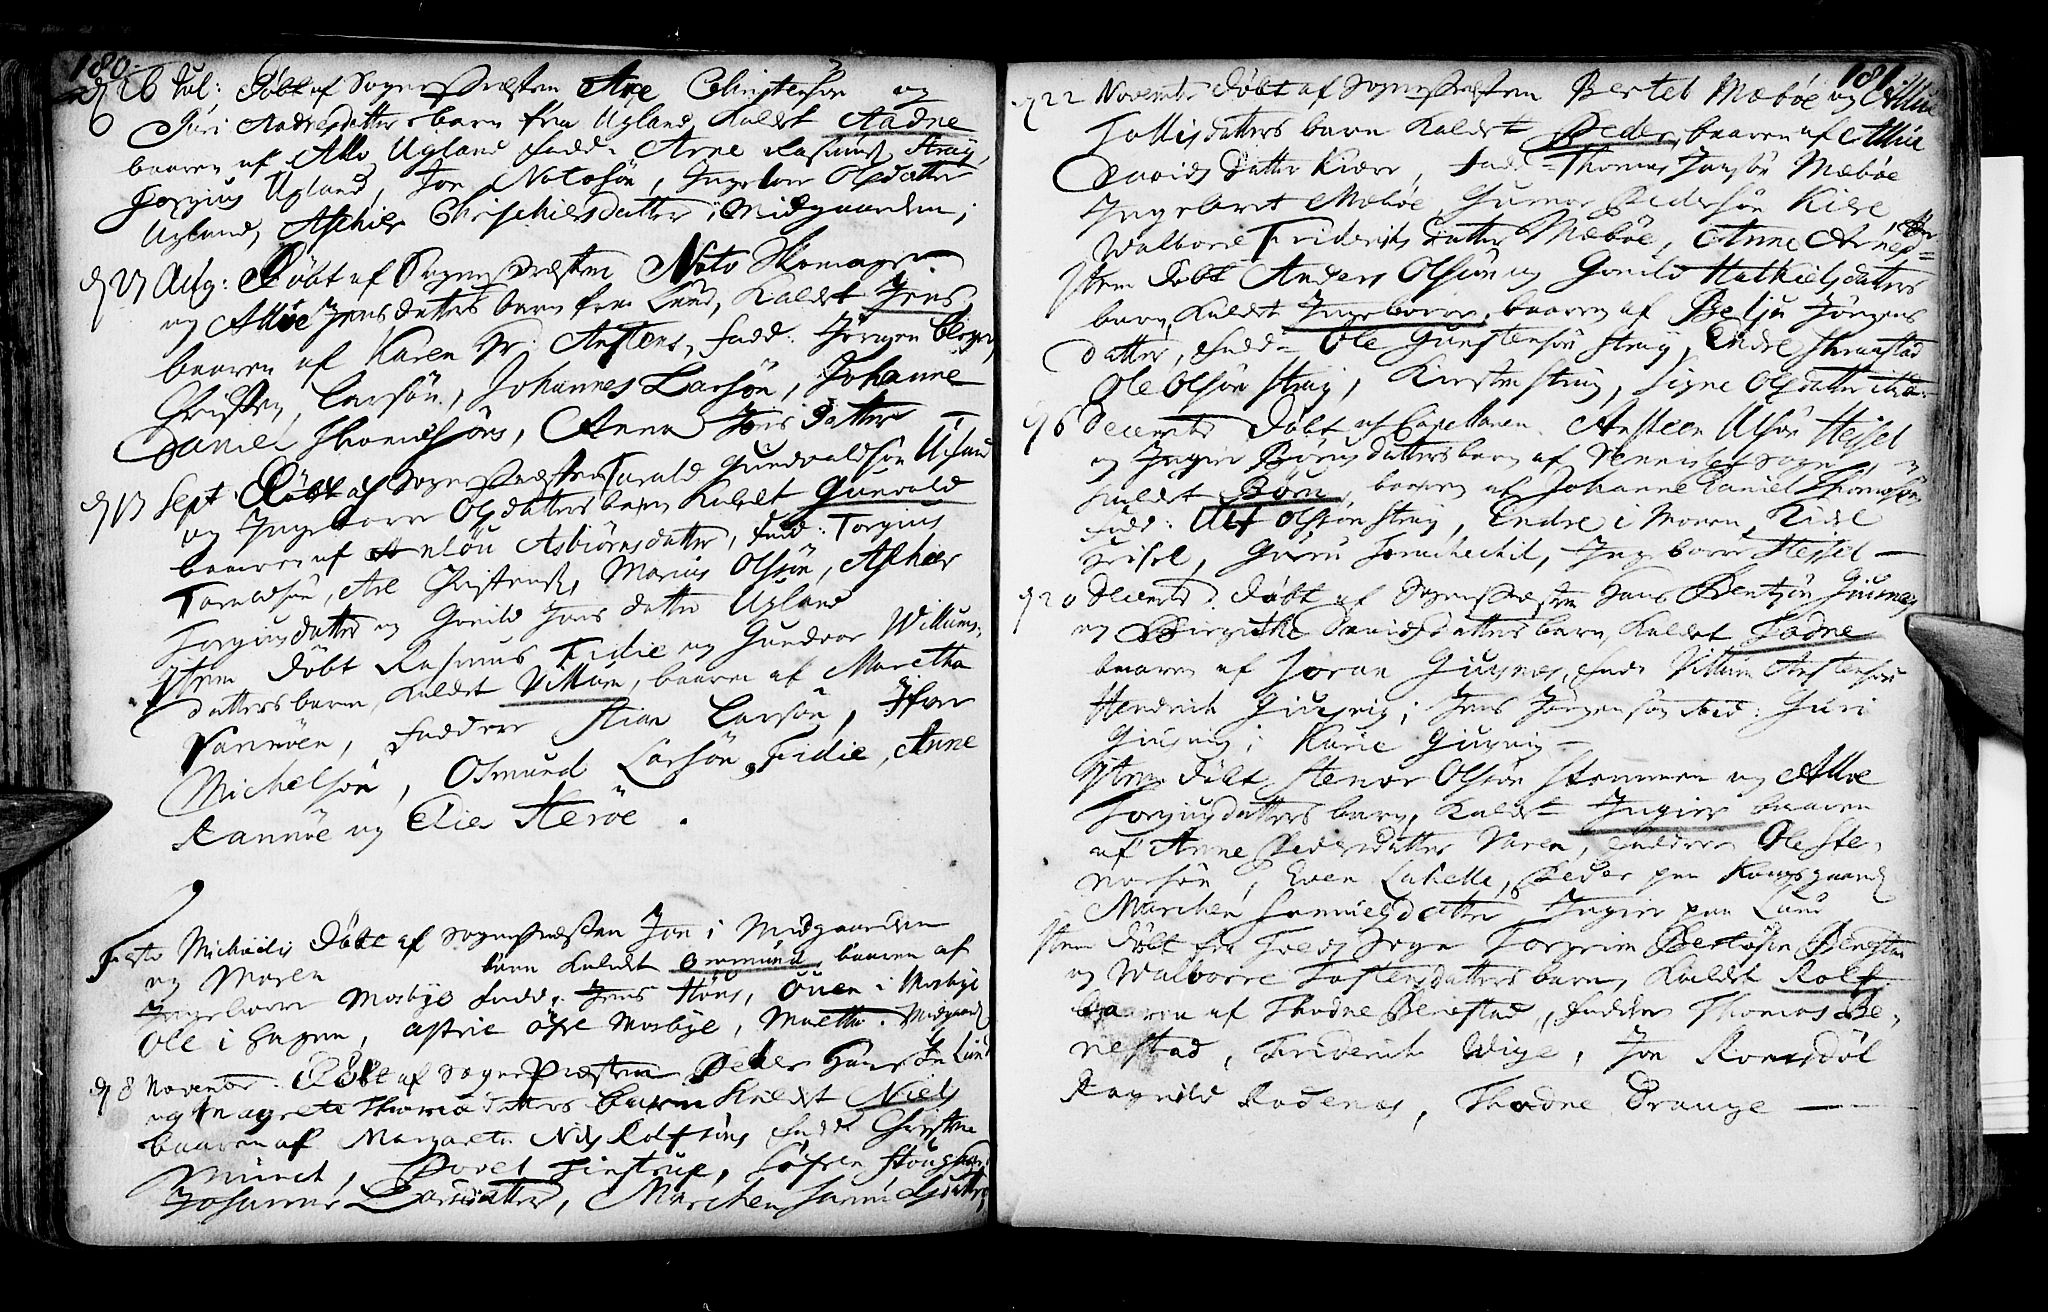 180.
d 26 Jul: Døbt af Sogne Præsten Are Christensøn og
Siri Aadnesdatters barn fra Ugland, Kaldt Aadne
baaren af Allo Ugland Fadd. Arne Rasmus Straÿ
Torgius Ugland, Jon Notosøn, Ingebor Olsdatter
Ugland, Ashier Chrischiesdatter i Midgaarden;
d 27 Aug: Døbt af Sogne Præsten Noto Thomasøn
og Alloe Jensdatters barn fra Lund, Kaldet Jens
baaren af Karen Hr: Anstens, Fadd: Jørgen
Christen Larsøn, Johannes Larsøn, Johanne
Daniel Thomesøns, Anna Jens datter
d 13 Sept. Døbt af Sogne Præsten Tarald Gundvaldsøn Ugland
og Ingeborre Olsdatters barn Kaldet Gunvald
baaren af Anlou Asbiørnsdatter, Fad: Torgius
Taraldsøn, Are Christens, Marius Olssøn, Ashier
Torgiusdatter og Gonild Jens datter Ugland
Item Døbt Rasmus Fidie og Gundvor Willums-
datters barn, Kaldet Villum, baaren af Maretha
Vannøen, Faddere Stian Larsøn, Iffver
Michelsøn, Osmund Larsøn Fidie, Anne
Rannøe og Elie Herøe.
Festo Michaelis Døbt af Sogne Præsten Jon i Midgaarden
og Maren barn Kaldet Ommund, baaren af
Ingeborre Mosbye Fadd. Jens Høns, Ouen i Mosbye
Ole i Hagen, Astrie øfre Mosbye, Maetta. Midgaard
d 8 November. Døbt af Sogne Præsten Peder Hansøn Lund
og Magrete Thomædatters barn Kaldet Niels
baaren af Margareta Nils Rolfsøns Fadd Christen
Münch, Povel Finstrup, Søfren
Johanne Larsdatter, Marchen Samuelsdatter,
181
d 22 November Døbt af Sogne Præsten Bertel Mæbøe og Allue
Tollisdatters barn Kaldet Peder, baaren af Allue
Davids Datter Kiære, Fad. Thomas Jensøn Mæbøe
Ingebret Mæbøe, Gunner Pedersøn Kire,
Walborre Friderichs Datter Mæbøe, Anne Arnes
Item Døbt Anders Olssøn og Gonild Mathiesdatters
barn Kaldet Ingeborre, baaren af Berju Jørgens
datter, Fadd. Ole Gunstensøn Straÿ, Endre Thranstad
Ole Olssøn Straÿ, Kirsten Straÿ, Signe Olsdatter
d 6 Decembr Døbt af Capellanen Ansteen Ulsøn Hessel
og Ingier Børns datters barn af Vennesla Sogn
Kaldet Børn, baaren af Johanne Daniel Thomesøns
Fadd: Ulf Olssøn Straÿ, Endre i Moren,
Guru, Ingeborr Hessel
d 20 Decembr. Døbt af Sogne Præsten Hans Bentsøn Giusnes
og Birgithe Davids datters barn, Kaldet Tadne
baaren af Joran Giusnes, Fad. Villum Anstensøn
Hendrich Giusvig, Jens Jørgensøn ibid: Siri
Giusvig, Karie Giusvig
Item Døbt Stener Olssøn Stemmen og Alloe
Torjusdatters barn, Kaldet Ingier baaren
af Anne Pedersdatter Varen, Faddere Ole Ste-
narsøn, Even Lahelle, Peder paa Kongsgaard
Marchen Samuelsdatter, Ingier paa Lund
Item Døbt fra Tveds Sogn Torgrim Bertosøn Benestad
og Walborre Tostensdatters barn, Kaldet Rolf
baaren af Thadne Benestad, Faddere Thomas Be-
nestad, Friderich Wige, Jon Romsdøl
Ragnild Rodenes, Thadne Drange